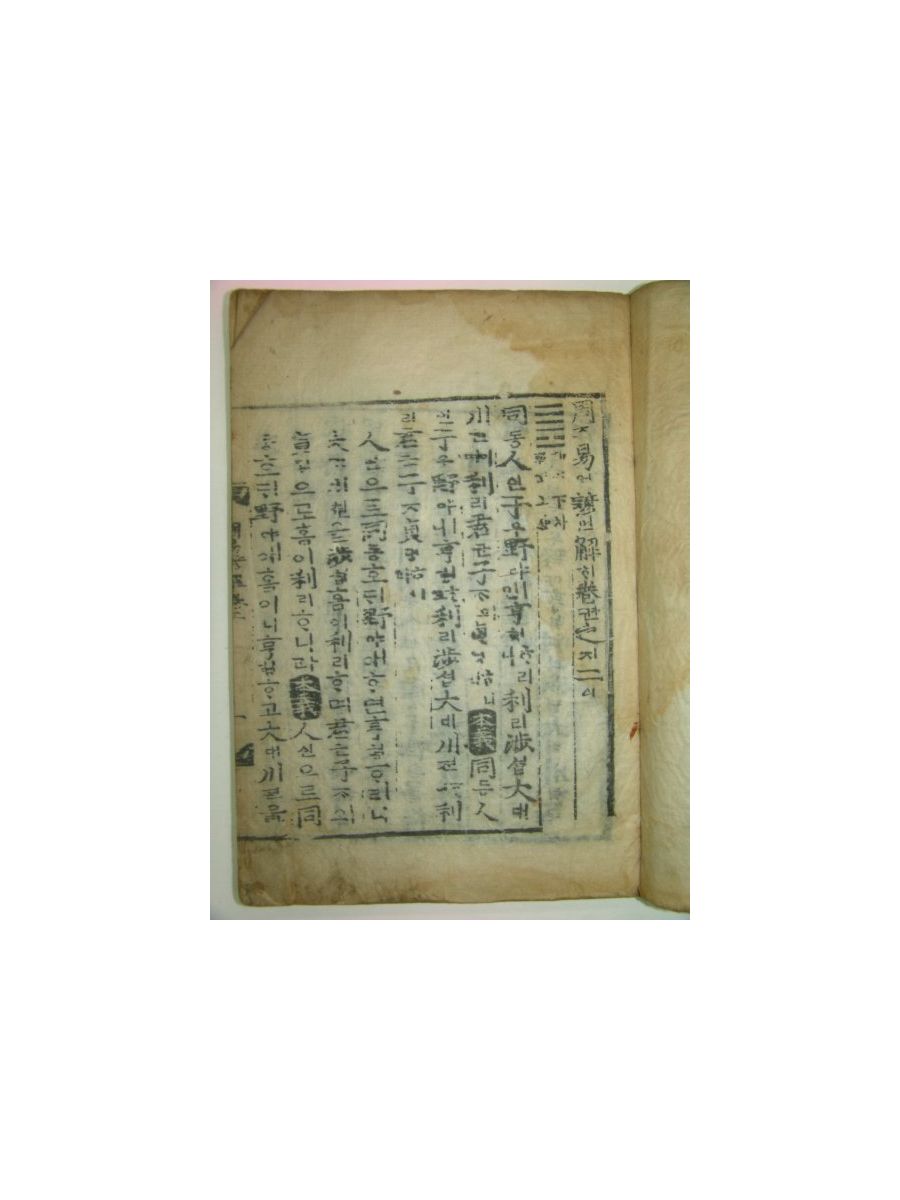 周쥬易역諺언解ᄒᆡ卷권之지二이
同동人인于우野야ㅣ면亨형ᄒᆞ리니利리涉셥大대
川쳔ᄒᆞ며利리君군子ᄌᆞ의貞뎡ᄒᆞ니 本義 同동人인
于우野야ㅣ니亨형코利리涉셥大대川쳔이나利
리君군子ᄌᆞ貞뎡
人인으로同동호ᄃᆡ野야애ᄒᆞ면亨형ᄒᆞ리니
大대川쳔을涉셥홈이利리ᄒᆞ며君군子ᄌᆞ의
貞뎡으로홈이利리ᄒᆞ니라 本義 人인으로同
동호ᄃᆡ野야애홈이니亨형ᄒᆞ고大대川쳔을